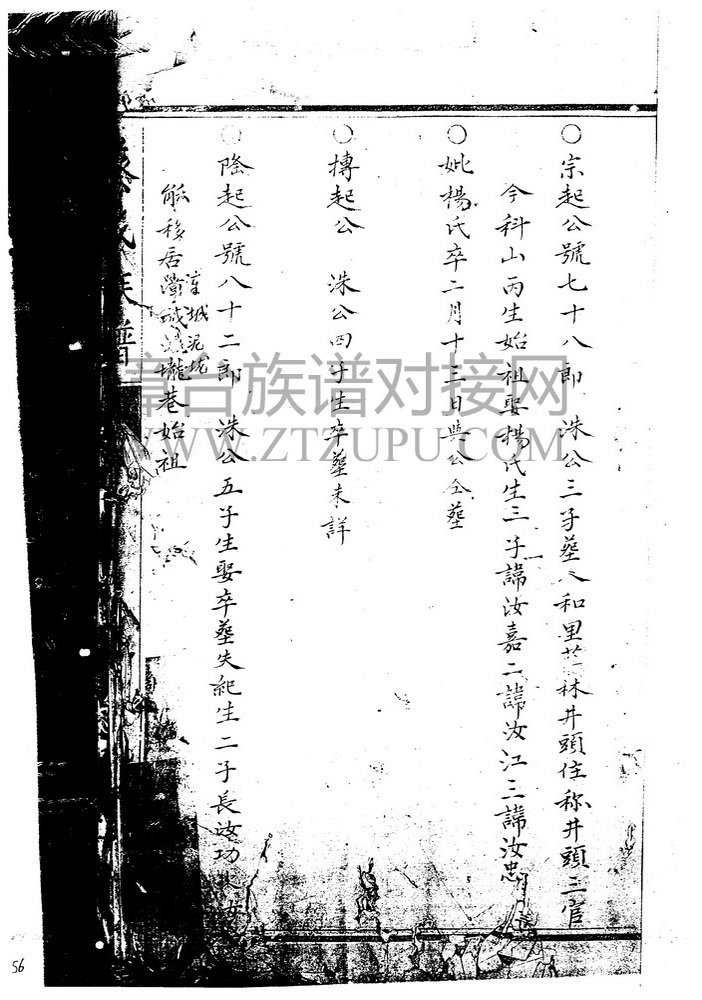 〇宗起公號七十八郎 洙公三子葬人和里林井頭住称井頭三官
今科山丙生始祖娶楊氏生三子諱汝嘉二諱汝江三諱汝忠
〇妣楊氏卒二月十三日與公仝葬
〇摶起公 洙公四子生卒葬未詳
〇隆起公號八十二郎 洙公五子生娶卒葬失紀生二子長汝功
移居壠巷始祖
城泥坑
族譜
漳台族谱对接网
WWW.ZTZUPU.COM
56